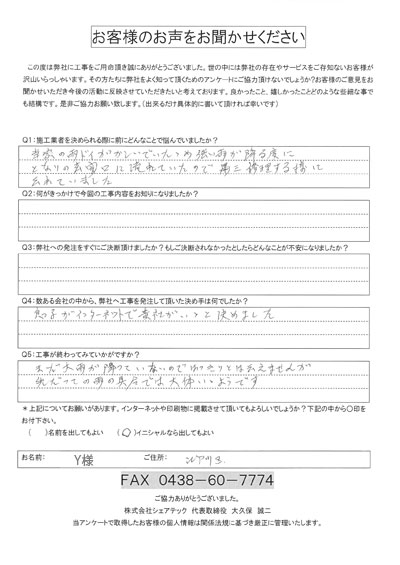 お客様のお声をお聞かせください
この度は弊社に工事をご用命頂き誠にありがとうございました。世の中には弊社の存在やサービスをご存知ないお客様が
沢山いらっしゃいます。その方たちに弊社をよく知って頂くためのアンケートにご協力頂けないでしょうか?お客様のご意見をお
聞かせいただき今後の活動に反映させていただきたいと考えております。良かったこと、嬉しかったことどのような些細な事で
も結構です。是非ご協力お願い致します。(出来るだけ具体的に書いて頂ければ幸いです)
Q1:施工業者を決められる際に前にどんなことで悩んでいましたか?
雨ドイが いため強い雨が降る度に
となりの玄関口に流れていたので 修理する様に
云れていました
Q2:何がきっかけで今回の工事内容をお知りになりましたか?
Q3:弊社への発注をすぐにご決断頂けましたか?もしご決断されなかったとしたらどんなことが不安になりましたか?
Q4:数ある会社の中から、弊社へ工事を発注して頂いた決め手は何でしたか?
息子がインターネットで貴社がいいと決めました
Q5:工事が終わってみていかがですか?
まだ大雨が降っていないのではっきりとは云えませんが
の雨の具合では大体いいようです
*上記についてお願いがあります。インターネットや印刷物に掲載させて頂いてもよろしいでしょうか?下記の中から〇印を
お付下さい。
( )名前を出してもよい (〇)イニシャルなら出してもよい
お名前: Y様 ご住所:
FAX 0438-60-7774
ご協力ありがとうございました。
株式会社シェアテック 代表取締役 大久保 誠二
当アンケートで取得したお客様の個人情報は関係法規に基づき厳正に管理いたします。